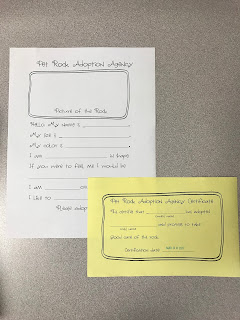 Pet Rock Adoption Agency
Picture of the Rock
Hello My name is
My size is
My color is
I am in shape
If you were to feel me I would be
I am
I like to
Please adop
Pet Rock Adoption Agency Certificate
This certifies that has adopted
and promises to take
good care of the rock.
Certification date